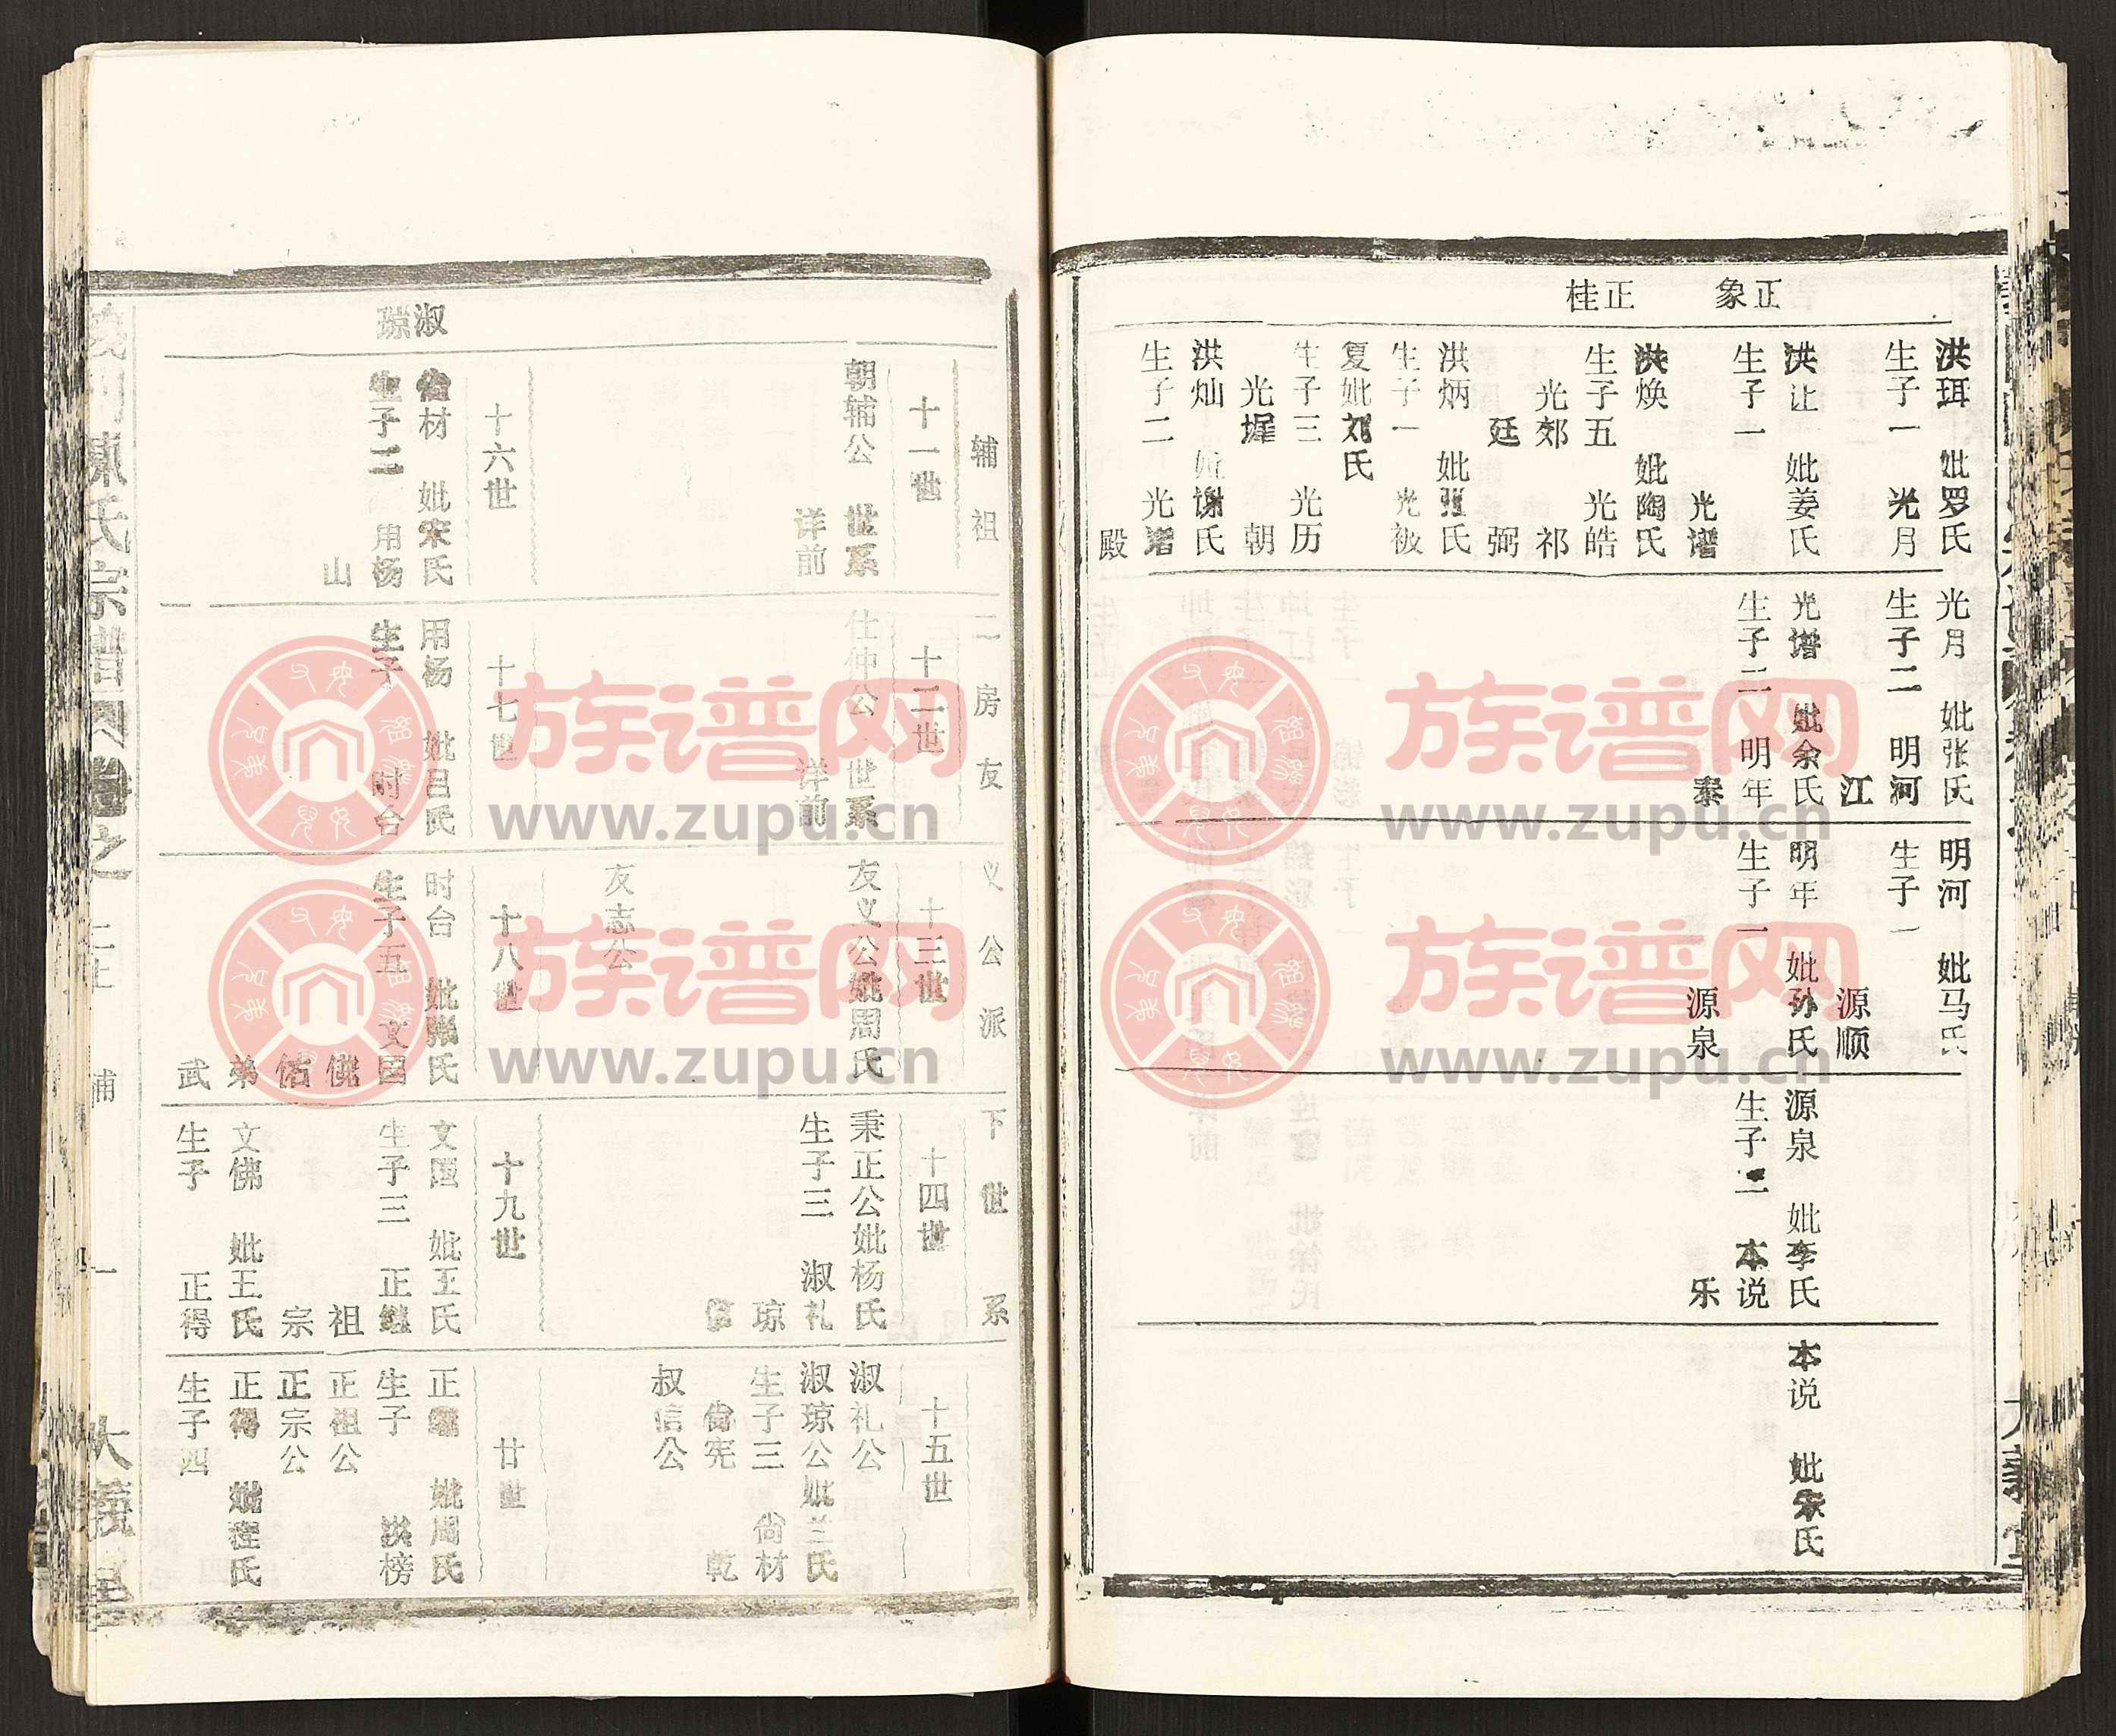 正象
正桂
洪珥 妣罗氏
生子一 光月
洪让 妣姜氏
生子一
光谱
洪焕 妣陶氏
生子五 光皓
光郊 祁
廷 弼
洪炳 妣张氏
生子一 光被
复妣刘氏
生子三 光历
光墀 朝
洪灿 妣谢氏
生子二 光谱
殿
光月 妣张氏
生子二 明河
江
光谱 妣余氏
生子二 明年
泰
明河 妣马氏
生子一
源顺
明年 妣孙氏
生子一
源泉
源泉 妣李氏
生子二 本说
乐
本说 妣朱氏
大义堂
辅祖二房友义公派下世系
十一世
朝辅公 世系
详前
十二世
仕仲公 世系
详前
十三世
友义公妣周氏
友志公
十四世
秉正公妣杨氏
生子三 淑礼
琼
信
十五世
淑礼公
淑琼公妣兰氏
生子三 尚材
尚宪 乾
叔信公
淑琼
十六世
尚材 妣宋氏
生子二 用杨
山
十七世
用杨 妣吕氏
生子 时台
十八世
时台 妣张氏
生子五 文国
佛
佑
弟
武
十九世
文国 妣王氏
生子三 正继
祖
宗
文佛 妣王氏
生子 正得
廿世
正继 妣周氏
生子 洪榜
正祖公
正宗公
正得 妣程氏
生子四
陈氏宗谱 卷之
辅
一
大义堂
族谱网
www.zupu.cn
族谱网
www.zupu.cn
族谱网
www.zupu.cn
族谱网
www.zupu.cn